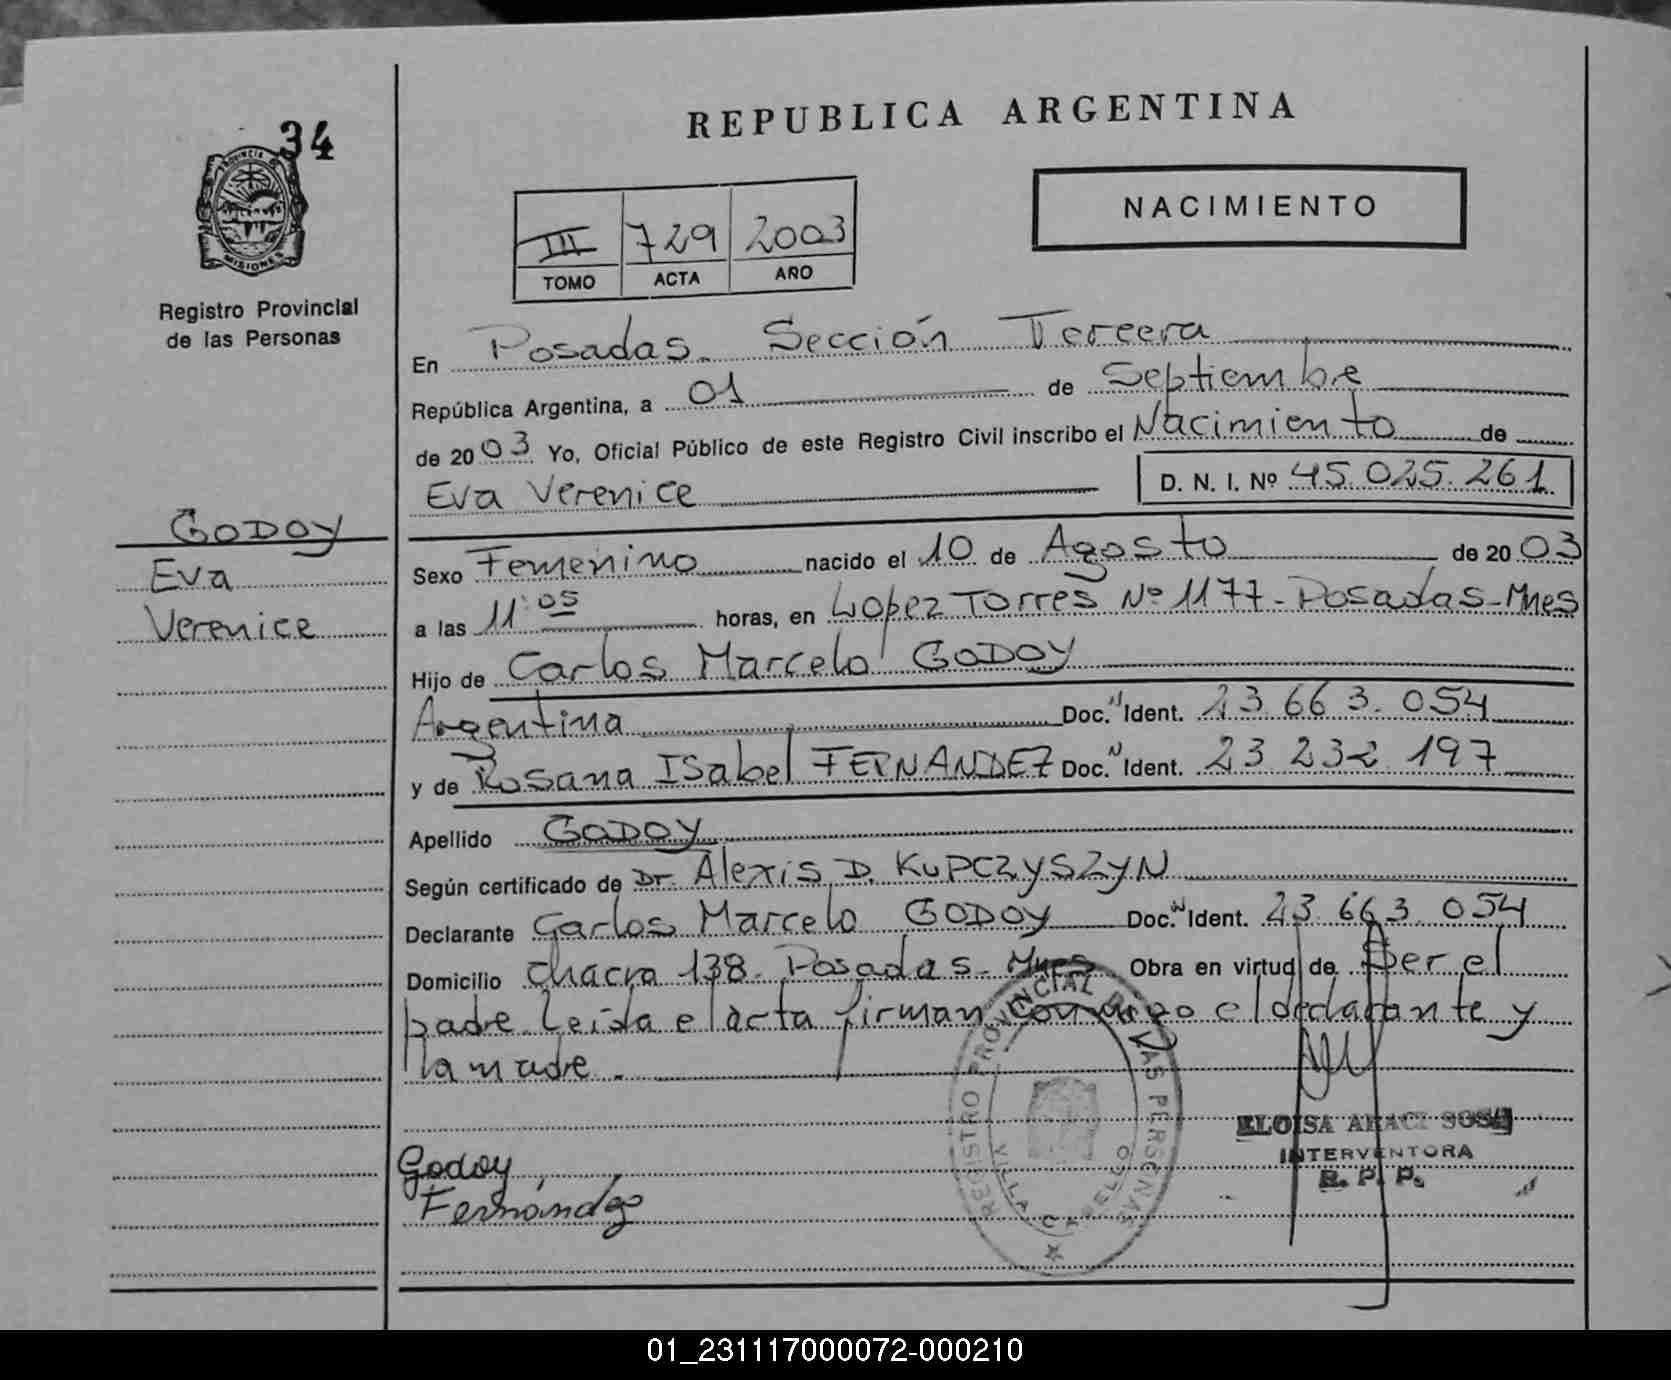 REPUBLICA ARGENTINA
34
PROVINCIA DE
MISIONES
NACIMIENTO
III 729 2003
TOMO ACTA AÑO
Registro Provincial
de las Personas
En Posadas. Sección Tercera
República Argentina, a 01 de Septiembre
de 2003 Yo, Oficial Público de este Registro Civil inscribo el Nacimiento de
Eva Verenice D. N. I. Nº 45.025.261
GODOY
Eva
Verenice
Sexo Femenino nacido el 10 de Agosto de 2003
a las 11:05 horas, en Lopez Torres Nº 1177 - Posadas - Mnes
Hijo de Carlos Marcelo GODOY
Argentina Doc. N Ident. 23.663.054
y de Rosana Isabel FERNANDEZ Doc. N Ident. 23 232 197
Apellido GODOY
Según certificado de Dr. Alexis D. KUPCZYSZYN
Declarante Carlos Marcelo GODOY Doc. N Ident. 23 663 054
Domicilio chacra 138. Posadas - Mnes Obra en virtud de Ser el
padre Leída el acta firman conmigo el declarante y
la madre.
REGISTRO PROVINCIAL DE LAS PERSONAS
VILLA CABELLO
ELOISA ARACI SOSA
INTERVENTORA
R. P. P.
Godoy
Fernández
01_231117000072-000210